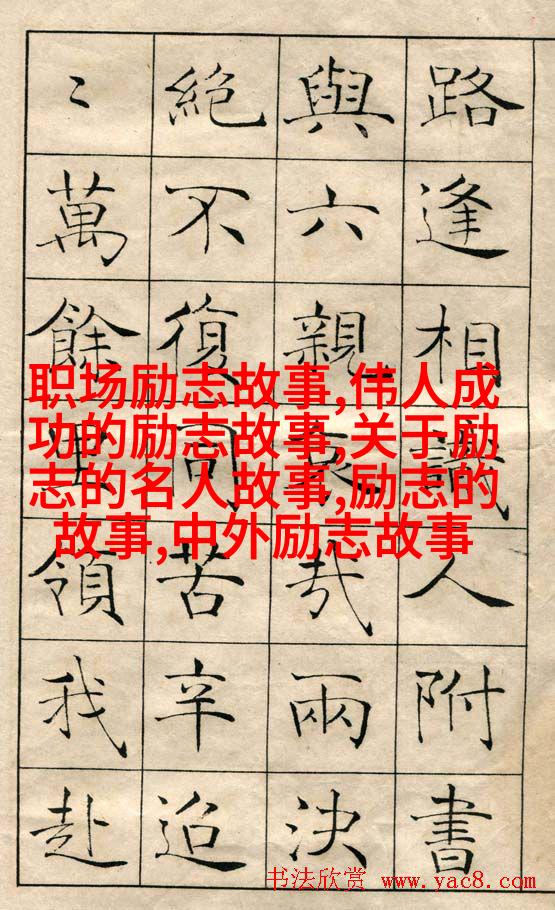 路逢相識人附書
與六親哀哉兩決
絕不復同苦辛迢
〻萬餘里領我赴
职场励志故事,伟人成
功的励志故事,关于励
志的名人故事,励志的
故事,中外励志故事
书法欣赏 www.yac8.com